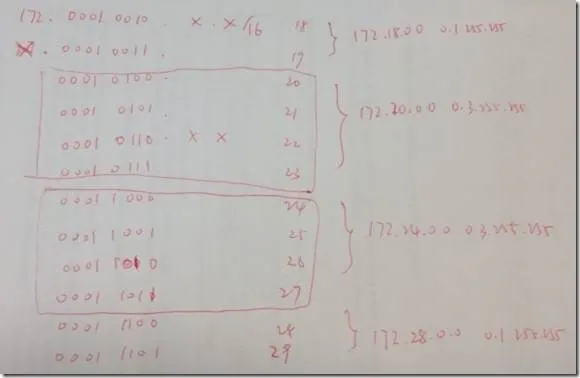 172. 0001 0010. X . X/16 18 172.18.0.0 0.1.255.255
0001 0011. 19
0001 0100. 20
0001 0101. 21 172.20.0.0 0.3.255.255
0001 0110. X X 22
0001 0111 23
0001 1000 24
0001 1001 25 172.24.0.0 0.3.255.255
0001 1010 26
0001 1011 27
0001 1100 28 172.28.0.0 0.1.255.255
0001 1101 29